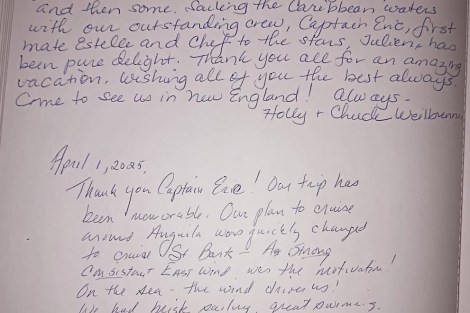 and then some. Sailing the Caribbean waters
with our outstanding crew, Captain Eric, first
mate Estelle and Chef to the stars, Julien, has
been pure delight. Thank you all for an amazing
vacation. Wishing all of you the best always.
Come to see us in New England! Always -
Holly + Chuck
April 1, 2025,
Thank you Captain Eric! Our trip has
been memorable. Our plan to cruise
around Anguila was quickly changed
to cruise St Bart - As Strong
Consistant East wind was the motivation!
On the sea - the wind drives us!
We had brisk sailing, great swimming,